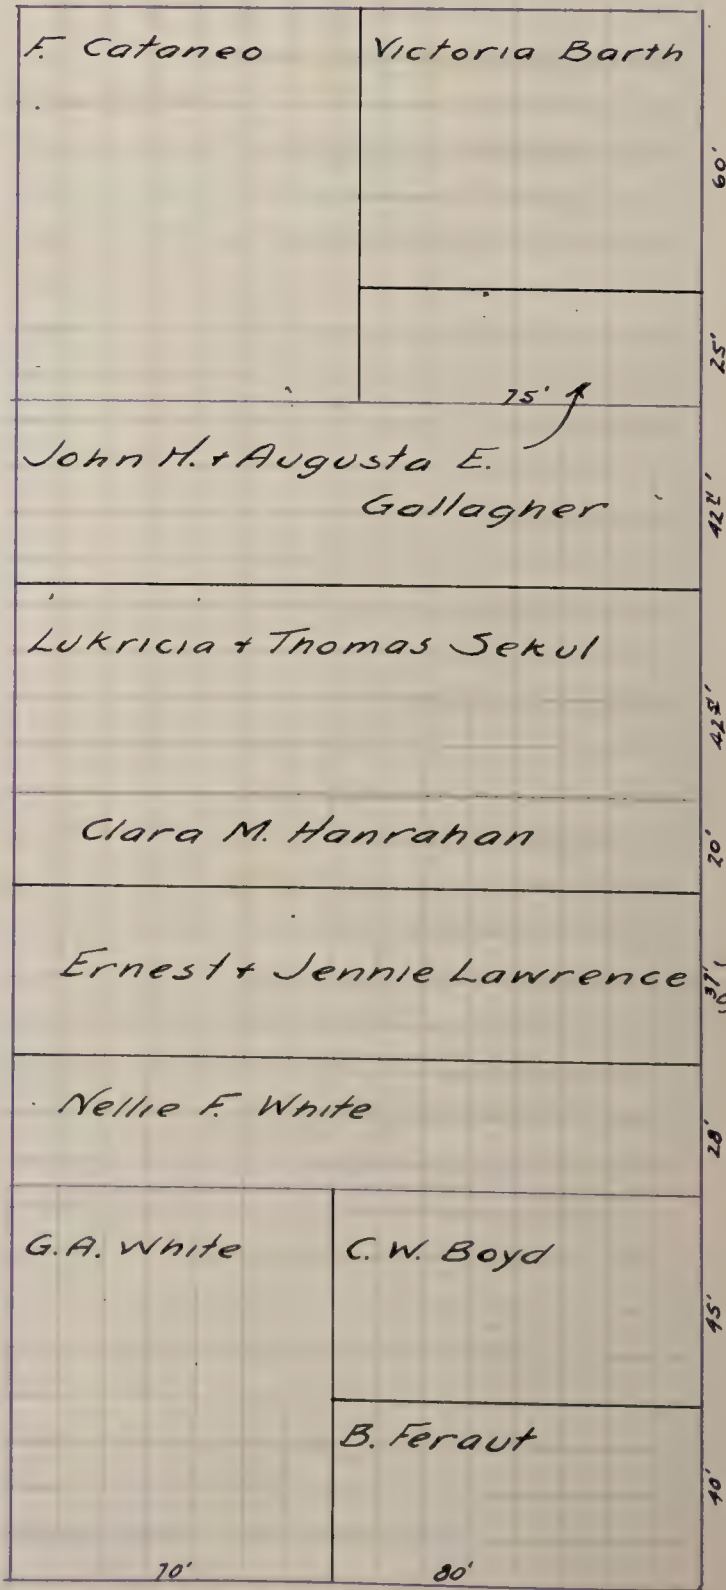 F. Cataneo
Victoria Barth
60'
25'
75'
John H. + Augusta E.
Gallagher
Lukricia + Thomas Sekul
Clara M. Hanrahan
20'
Ernest + Jennie Lawrence
37'
Nellie F. White
28'
G.A. White
C. W. Boyd
45'
B. Feraut
40'
70'
80'